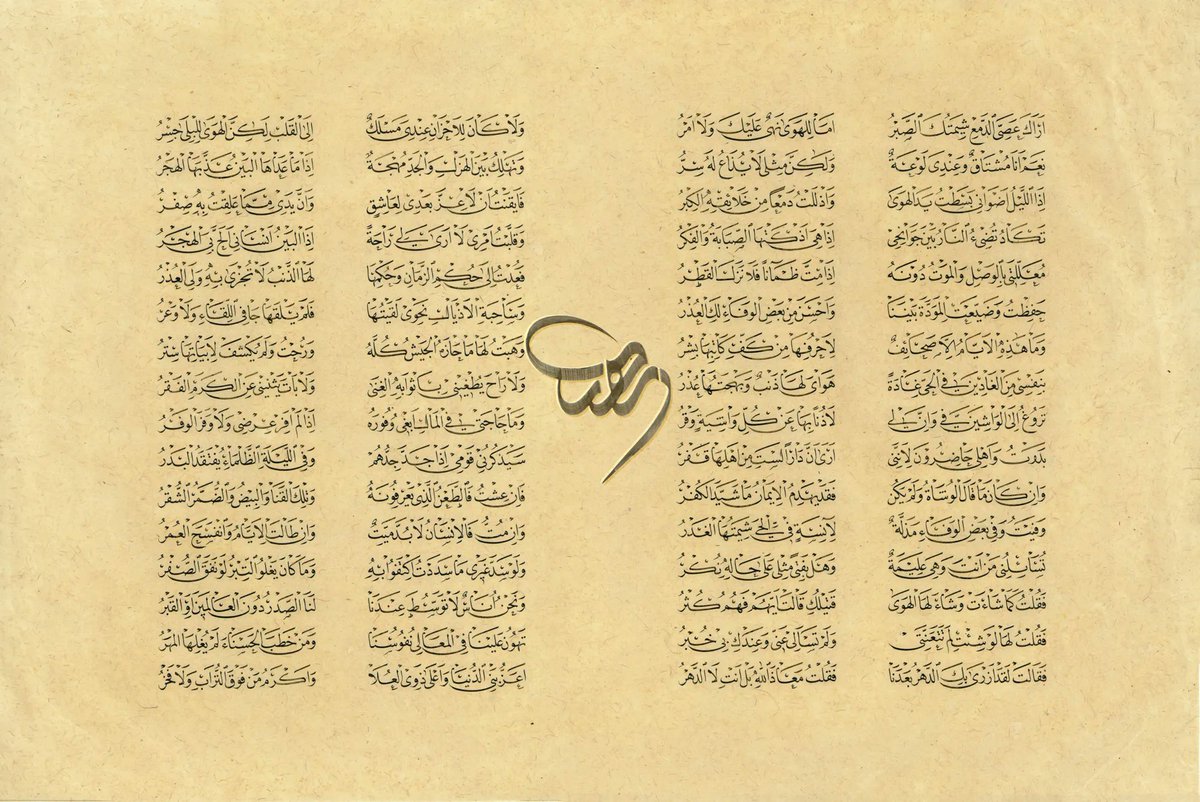 أراك عصي الدمع شيمتك الصبر أما للهوى نهي عليك ولا أمر
نعم أنا مشتاق وعندي لوعة ولكن مثلي لا يذاع له سر
إذا الليل أضواني بسطت يد الهوى وأذللت دمعا من خلائقه الكبر
تكاد تضيء النار بين جوانحي إذا هي أذكتها الصبابة والفكر
معللتي بالوصل والموت دونه إذا مت ظمآنا فلا نزل القطر
حفظت وضيعت المودة بيننا وأحسن من بعض الوفاء لك العذر
وما هذه الأيام إلا صحائف لأحرفها من كف كاتبها بشر
بنفسي من الغادين في الحي غادة هواي لها ذنب وبهجتها عذر
تروغ إلى الواشين في وإن لي لأذنا بها عن كل واشية وقر
بدوت وأهلي حاضرون لأنني أرى أن دارا لست من أهلها قفر
وإن كان ما قال الوشاة ولم يكن فقد يهدم الإيمان ما شيد الكفر
وفيت وفي بعض الوفاء مذلة لآنسة في الحي شيمتها الغدر
تسائلني من أنت وهي عليمة وهل بفتى مثلي على حاله نكر
فقلت كما شاءت وشاء لها الهوى قتيلك قالت أيهم فهم كثر
فقلت لها لو شئت لم تتعنتي ولم تسألي عني وعندك بي خبر
فقالت لقد أزرى بك الدهر بعدنا فقلت معاذ الله بل أنت لا الدهر
ولا كان للأحزان عندي مسلك إلى القلب لكن الهوى للبلى جسر
وتهلك بين الهزل والجد مهجة إذا ما عداها البين عذبها الهجر
فأيقنت أن لا عز بعدي لعاشق وأن يدي مما علقت به صفر
وقلبت أمري لا أرى لي راحة إذا البين أنساني ألح بي الهجر
فعدت إلى حكم الزمان وحكمها لها الذنب لا تجزى به ولي العذر
وساحبة الأذيال نحوي لقيتها فلم يلقها جافي اللقاء ولا وعر
وهبت لها ما حازه الجيش كله ورحت ولم يكشف لأبياتها ستر
ولا راح يطغيني بأثوابه الغنى ولا بات يثنيني عن الكرم الفقر
وما حاجتي في المال أبغي وفوره إذا لم أفر عرضي فلا وفر الوفر
سيذكرني قومي إذا جد جدهم وفي الليلة الظلماء يفتقد البدر
فإن عشت فالطعن الذي يعرفونه وتلك القنا والبيض والضمر الشقر
وإن مت فالإنسان لا بد ميت وإن طالت الأيام وانفسح العمر
ولو سد غيري ما سددت اكتفوا به وما كان يغلو التبر لو نفق الصفر
ونحن أناس لا توسط عندنا لنا الصدر دون العالمين أو القبر
تهون علينا في المعالي نفوسنا ومن خطب الحسناء لم يغلها المهر
أعز بني الدنيا وأعلى ذوي العلا وأكرم من فوق التراب ولا فخر